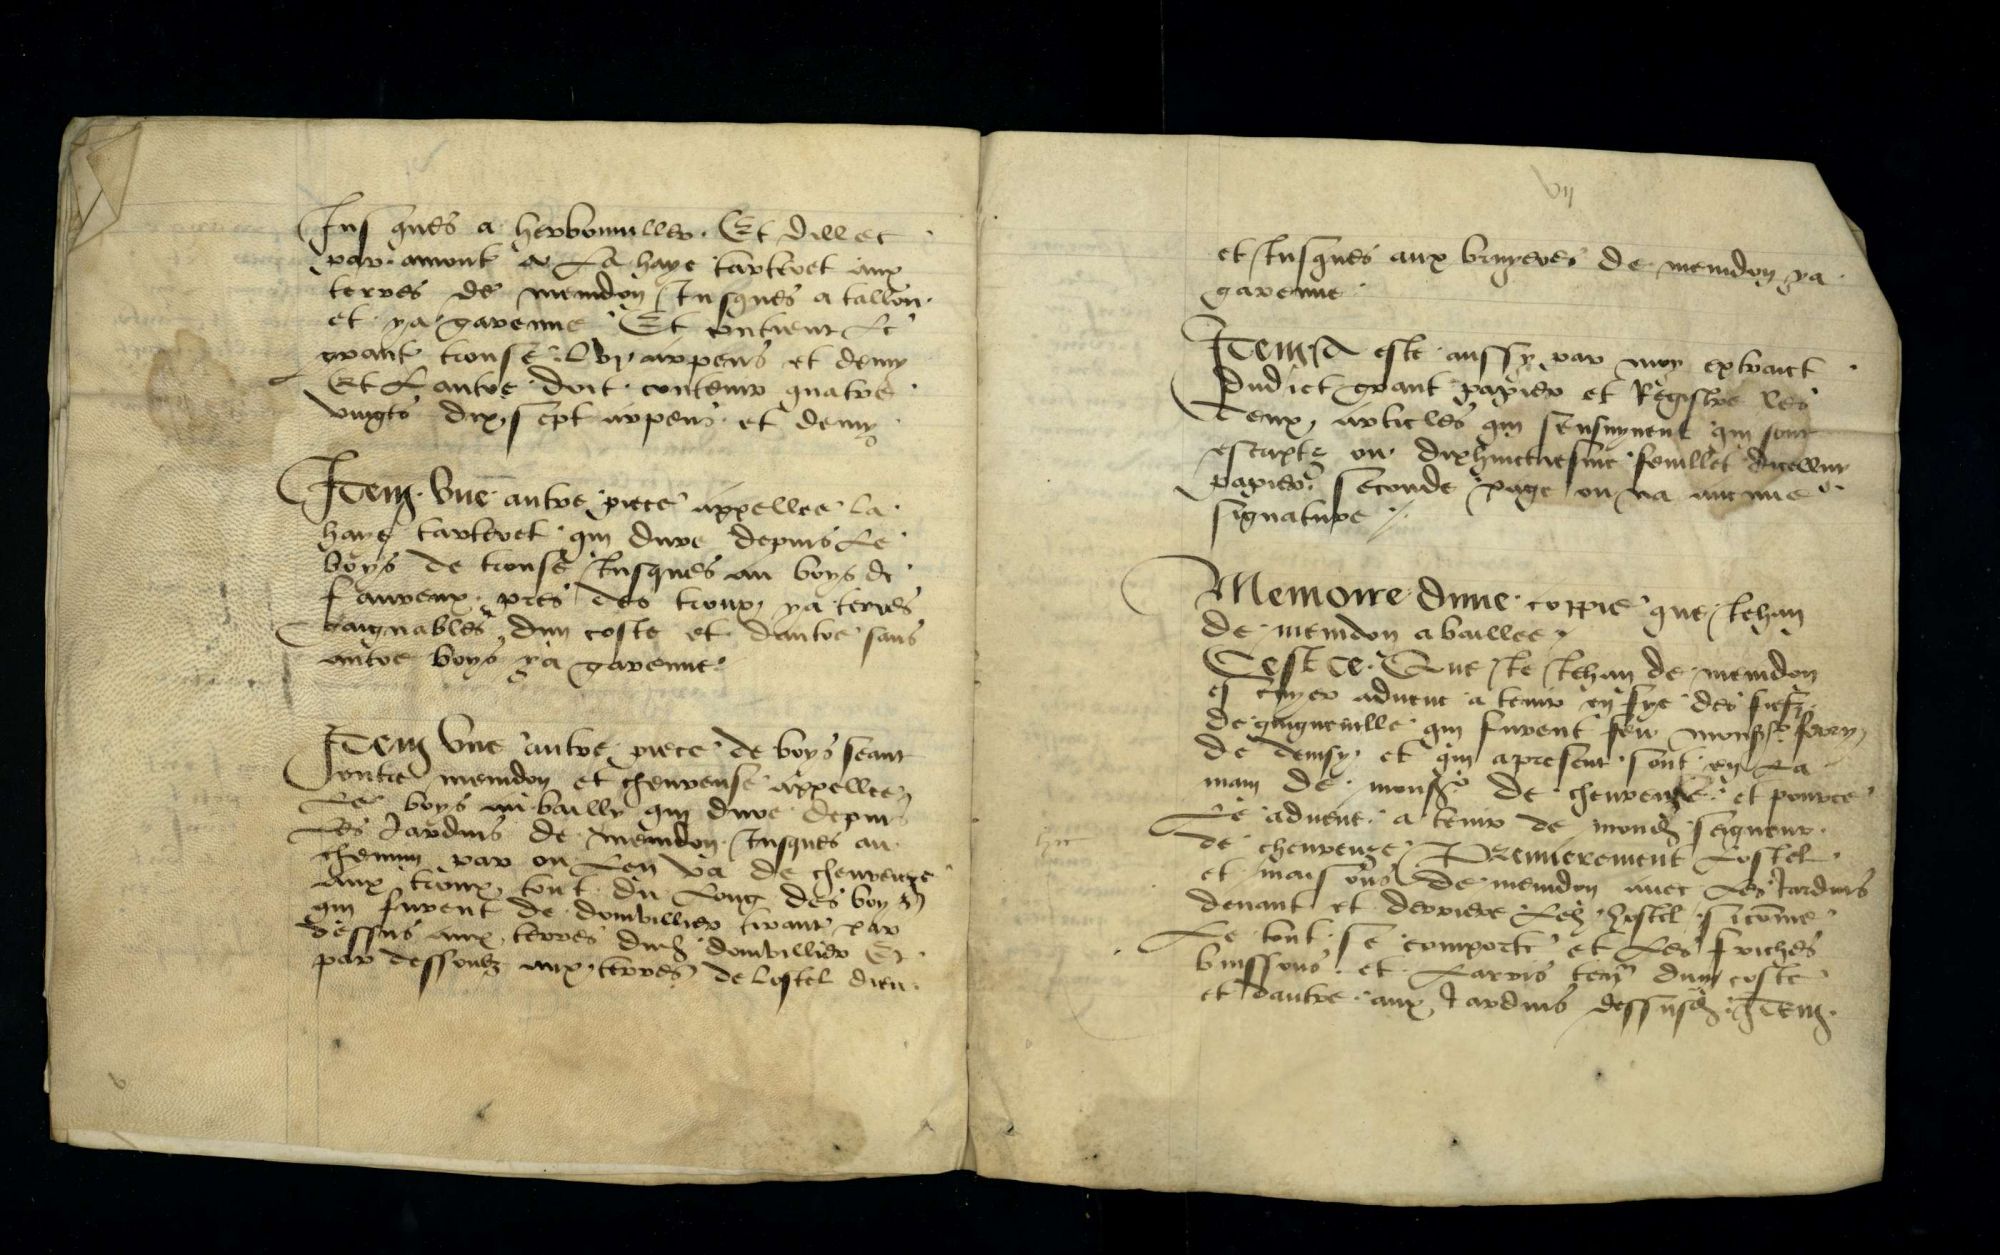 Jusques a herbouviller. Et dillec
par amont a La haye tarteret aux
terres de meudon Jusques a tallon.
et ya garenne Et contient Le
grant trousse Lvj arpens et demy
Et Lautre doit contenir quatre
vingts dix sept arpens et demy
Item. Une autre piece appellee la
haye tarteret qui dure depuis Le
boys de trousse Jusques au boys de
faureux. pres des troux, ya terres
gaignables dun coste et dautre sans
autre boys ya garenne.
Item Une autre piece de boys seant
entre meudon et chevreuse appellee
Le boys au bailly qui dure depuis
Les Jardins de meudon Jusques au
chemin par ou Len va de chevreuze
aux troux, tout du Long des boys
qui furent de douvillier tirant par
dessus aux terres dud douvillier Et
par dessoubz aux terres de lostel dieu.
vij
et Jusques aux bruyeres de meudon ya
garenne
Item A este aussy par moy extraict
dudict grant papier et Registre les
deux articles qui sensuyvent qui sont
escripts ou dixhuictiesme feuillet dicelluy
papier seconde page ou na aucune
signature
Memoire dune coppie que Jehan
de meudon a baillee
Cest ce Que Je Jehan de meudon
escuyer advoue a tenir en foy des fiefz
de guigneville qui furent feu monsr ferry
de denisy et qui apresent sont en La
main de monsr de chevreuze et pource
Le advoue a tenir de mond seigneur
de chevreuze Premierement Lostel
et maisons de meudon avec Les Jardins
devant et derriere Led hostel sicomme
Le tout se comporte et Les friches
buissons et Larris ten dun coste
et dautre aux Jardins dessusd. Item.